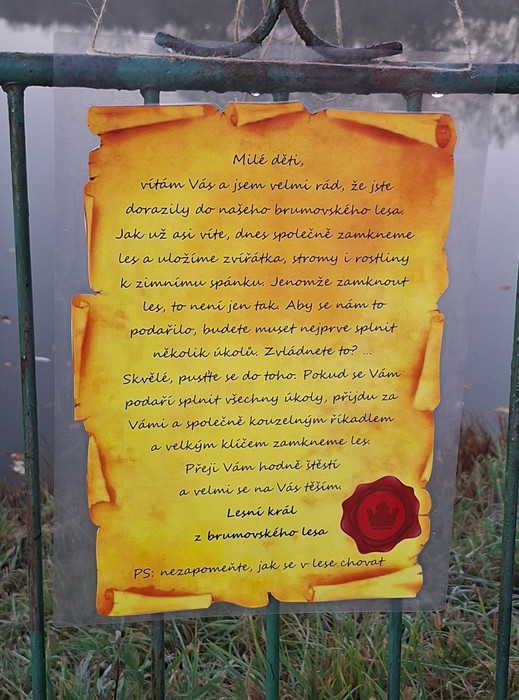 Milé děti,
vítám Vás a jsem velmi rád, že jste
dorazily do našeho brumovského lesa.
Jak už asi víte, dnes společně zamkneme
les a uložíme zvířátka, stromy i rostliny
k zimnímu spánku. Jenomže zamknout
les, to není jen tak. Aby se nám to
podařilo, budete muset nejprve splnit
několik úkolů. Zvládnete to? ...
Skvělé, pusťte se do toho. Pokud se Vám
podaří splnit všechny úkoly, přijdu za
Vámi a společně kouzelným říkadlem
a velkým klíčem zamkneme les.
Přeji Vám hodně štěstí
a velmi se na Vás těším.
Lesní král
z brumovského lesa
PS: nezapomeňte, jak se v lese chovat